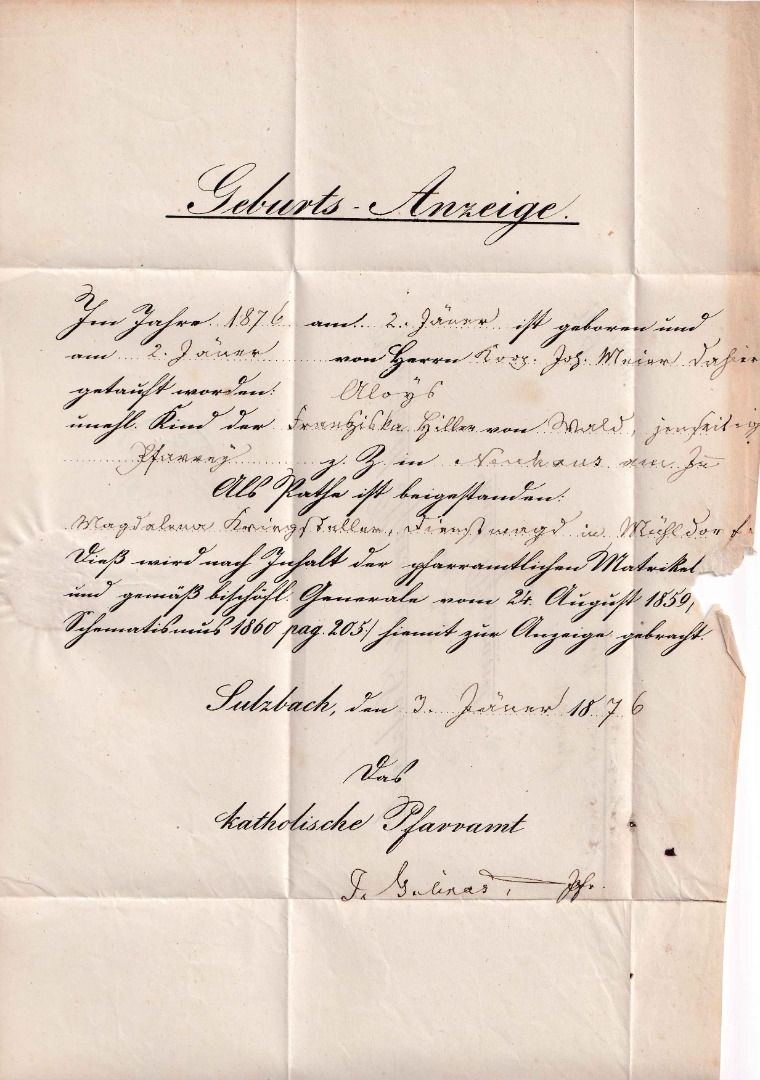 Geburts-Anzeige.
Im Jahre 1876 am 2. Jäner ist geboren und
am 2. Jäner von Herrn Koop. Joh. Meier dahier
getauft worden: Aloys
unehl. Kind der Franziska Hiller von Wald, jenseitig
Pfarrey z. Z. in Neuhaus am In
Als Pathe ist beigestanden:
Magdalena Kriegstaller, Dienstmagd in Mühldorf.
Dieß wird nach Inhalt der pfarramtlichen Matrikel
und gemäß bischöfl. Generale vom 24. August 1859,
Schematismus 1860 pag. 205/ hiemit zur Anzeige gebracht.
Sulzbach, den 3. Jäner 1876
Das
katholische Pfarramt
Pfr.